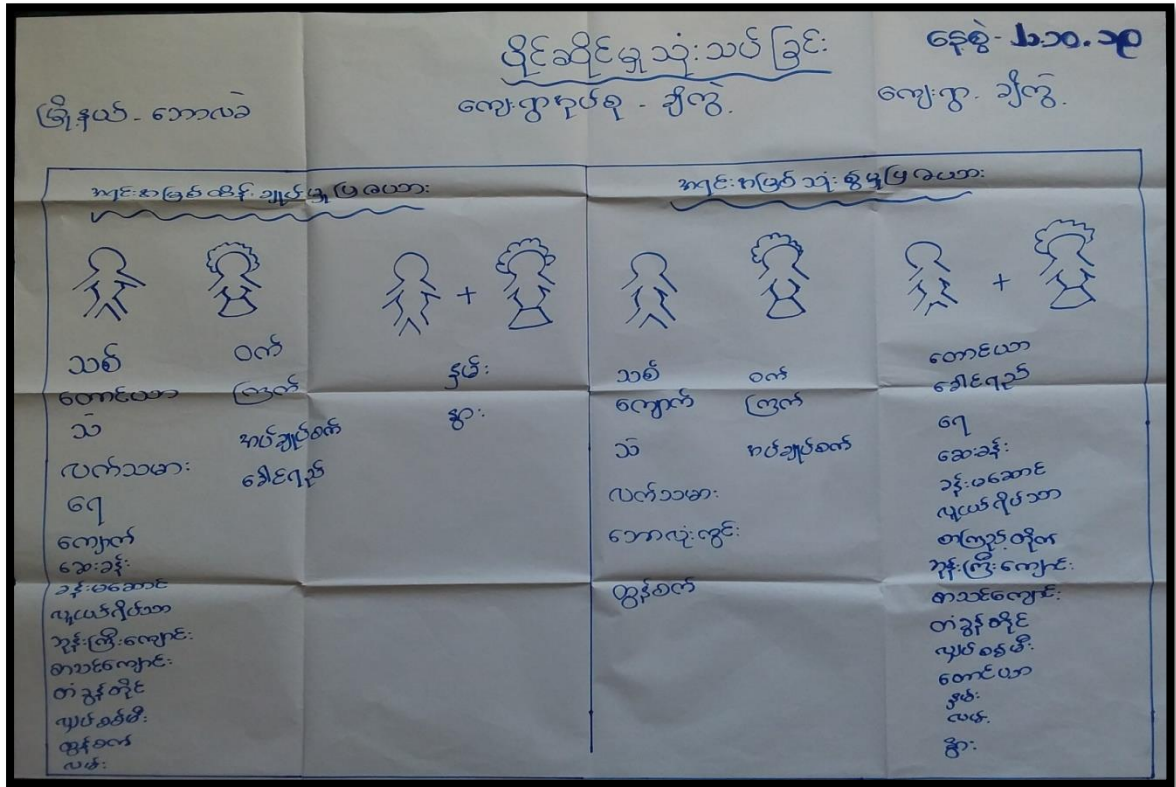 ပိုင်ဆိုင်မှုသုံးသပ်ခြင်း
နေ့စွဲ-
မြို့နယ် - ဘောလခဲ
ကျေးရွာအုပ်စု - ချီကွဲ.
ကျေးရွာ. ချီကွဲ.
အရင်းအမြစ်ထိန်းချုပ်မှုပြဇယား
အရင်းအမြစ်သုံးစွဲမှုပြဇယား
+
+
သစ်
တောင်ယာ
သဲ
လက်သမား
ရေ
ကျောက်
ဆေးခန်း
ခန်းမဆောင်
လူငယ်ရိပ်သာ
ဘုန်းကြီးကျောင်း
စာသင်ကျောင်း
တံခွန်တိုင်
လျှပ်စစ်မီး
ထွန်စက်
လမ်း
ဝက်
ကြက်
အပ်ချုပ်စက်
ခေါင်ရည်
နှမ်း
နွား
သစ်
ကျောက်
သဲ
လက်သမား
ဘောလုံးကွင်း
ထွန်စက်
ဝက်
ကြက်
အပ်ချုပ်စက်
တောင်ယာ
ခေါင်ရည်
ရေ
ဆေးခန်း
ခန်းမဆောင်
လူငယ်ရိပ်သာ
စာကြည့်တိုက်
ဘုန်းကြီးကျောင်း
စာသင်ကျောင်း
တံခွန်တိုင်
လျှပ်စစ်မီး
တောင်ယာ
နှမ်း
လမ်း
နွား